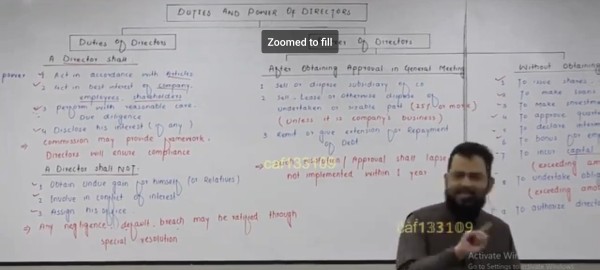 DUTIES AND POWER OF DIRECTORS
Duties of Directors
of Directors
Zoomed to fill
A Director shall
power
1 Act in accordance with Articles
2 Act in best interest of company,
employees, shareholders
3 Perform with reasonable care.
Due diligence
4 Disclose his interest (if any)
⇒ Commission may provide framework.
Directors will ensure compliance
A Director shall NOT
1 Obtain undue gain for himself (or Relatives)
2 Involve in conflict of interest
3 Assign his office
⇒ Any negligence, default, breach may be ratified through
special resolution
After Obtaining Approval in General Meeting
1 Sell or dispose subsidiary of co
2 Sell, Lease or otherwise dispose of
undertaken or sizable part (25% or more)
(unless it is company's business)
3 Remit or give extension for Repayment
of Debt
Approval shall lapse
not implemented within 1 year
caf133109
Without Obtaining
To issue shares
To make loans
To make investm
To approve quarte
To declare interim
To bonus for em
To incur capital
(exceeding amo
To undertake oblig
(exceeding amo
To authorize direct
caf133109
Activate Win
Go to Settings to activate